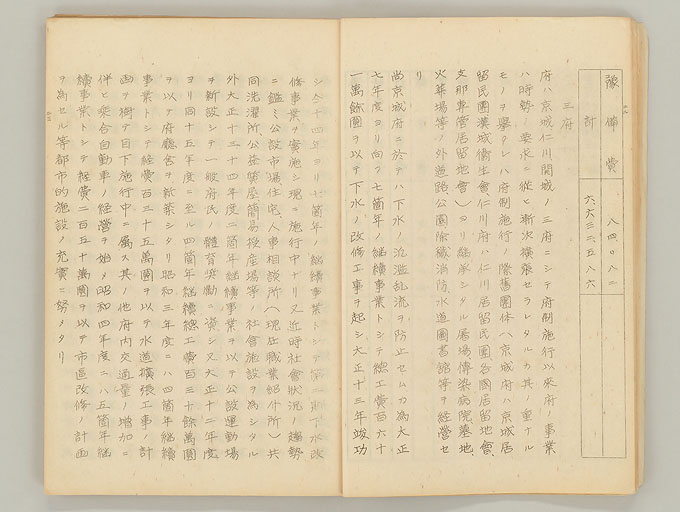 豫備費 八四〇八二
計 六六三三五八六
三府
府ハ京城仁川開城ノ三府ニシテ府制施行以來府ノ事業
ハ時勢ノ要求ニ從ヒ漸次擴張セラレタルカ其ノ重ナル
モノヲ擧クレハ府制施行ノ際舊團体(京城府ハ京城居
留民團漢城衛生會仁川府ハ仁川居留民團各國居留地會、
支那專管居留地會)ヨリ繼承シタル屠場傳染病院墓地
火葬場等ノ外道路公園除穢消防水道圖書館等ヲ經營セ
リ
尚京城府ニ於テハ下水ノ氾濫乱流ヲ防止セムカ為大正
七年度ヨリ向フ七箇年ノ繼續事業トシテ總工費百六十
一萬餘圓ヲ以テ下水ノ改修工事ヲ起シ大正十三年竣功
シ今十四年ヨリ七箇年ノ繼續事業トシテ第二期下水改
修事業ヲ實施シ現ニ施行中ナリ又近時社會狀況ノ趨勢
ニ鑑ミ公設市場住宅、人事相談所(現在職業紹介所)共
同洗濯所公益質屋簡易授産場等ノ社會施設ヲ為シタル
外大正十三十四年度二箇年繼續事業ヲ以テ公設運動場
ヲ新設シテ一般府民ノ體育奬勵ニ資シ又大正十二年度
ヨリ同十五年度ニ至ル四箇年繼續總工費百三十餘萬圓
ヲ以テ府廳舍ヲ新築シタリ昭和三年度ニハ四箇年繼續
事業トシテ經費百三十五萬圓ヲ以テ水道擴張工事ノ計
畫ヲ樹テ目下施行中ニ屬ス其ノ他府内交通量ノ増加ニ
伴ヒ乘合自動車ノ經營ヲ始メ昭和四年度ニハ五箇年繼
續事業トシテ經費二百五十萬圓ヲ以テ市區改修ノ計畫
ヲ為セル等都市的施設ノ充實ニ努メタリ